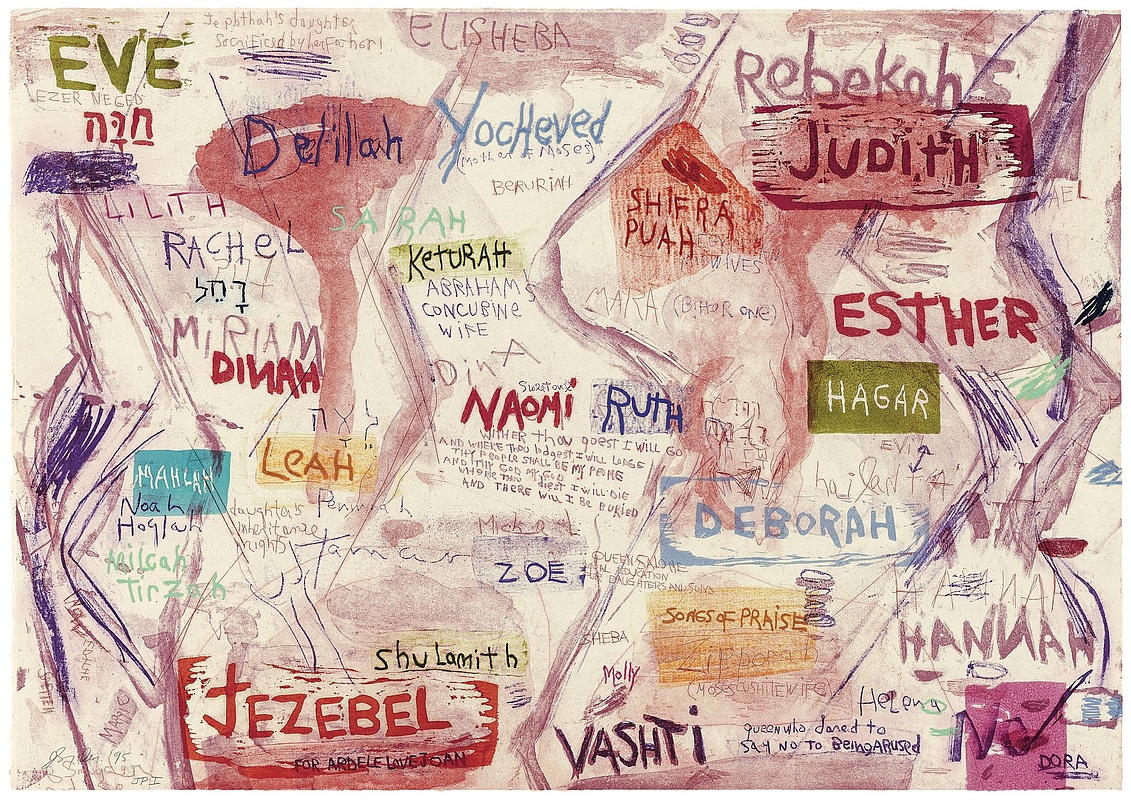 EVE
Jephthah's daughter
Sacrificed by her Father!
ELISHEBA
Rebekah
EZER NEGED
חַוָּה
Delilah
Yocheved
(Mother of Moses)
JUDITH
BERURIAH
LILITH
SARAH
SHIFRA
PUAH
WIVES
RACHEL
KETURAH
רָחֵל
ABRAHAM'S
CONCUBINE
WIFE
MARA (BitteR one)
ESTHER
MIRIAM
DINAH
DinA
Sweet one
NAOMI
RUTH
HAGAR
WitHER thou goest I WILL GO
AND WHERE THOU lodgest I WILL LODGE
THY PEOPLE SHALL BE MY PEOPLE
AND THY GOD MY GOD
WHERE THOU diest I WILL DIE
AND THERE WILL I BE BURIED
לאה
LEAH
MAHLAH
Noah
Hoglah
Milcah
Tirzah
daughter's
inheritance
rights
Peninnah
Tamar
ZOE
DEBORAH
QUEEN SALOME
EDUCATION
DAUGHTERS AND SONS
SONGS OF PRAISE
SHEBA
Zipporah
(MOSES CUSHITE WIFE)
Molly
HANNAH
HANNAH
shulamith
JEZEBEL
FOR ARDELE LOVE JOAN
VASHTi
queen who dared to
say NO TO BeingABUSED
Helena
DORA
'95